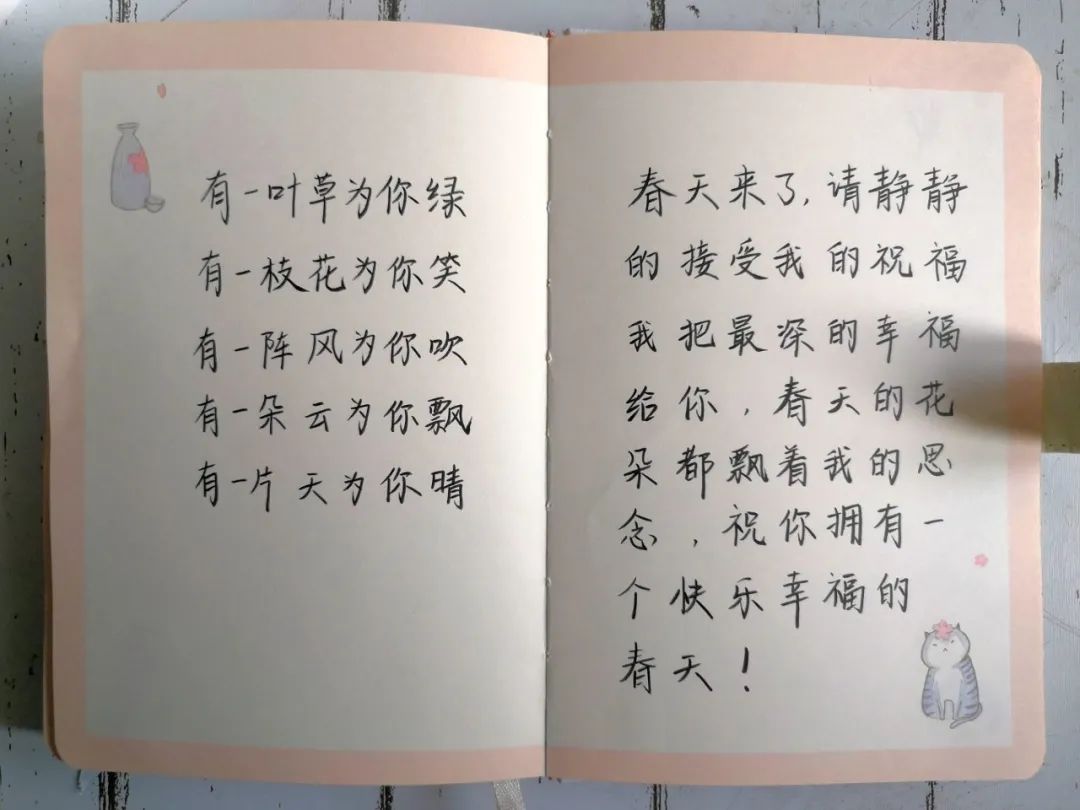 有一叶草为你绿
有一枝花为你笑
有一阵风为你吹
有一朵云为你飘
有一片天为你晴
春天来了,请静静
的接受我的祝福
我把最深的幸福
给你,春天的花
朵都飘着我的思
念,祝你拥有一
个快乐幸福的
春天!